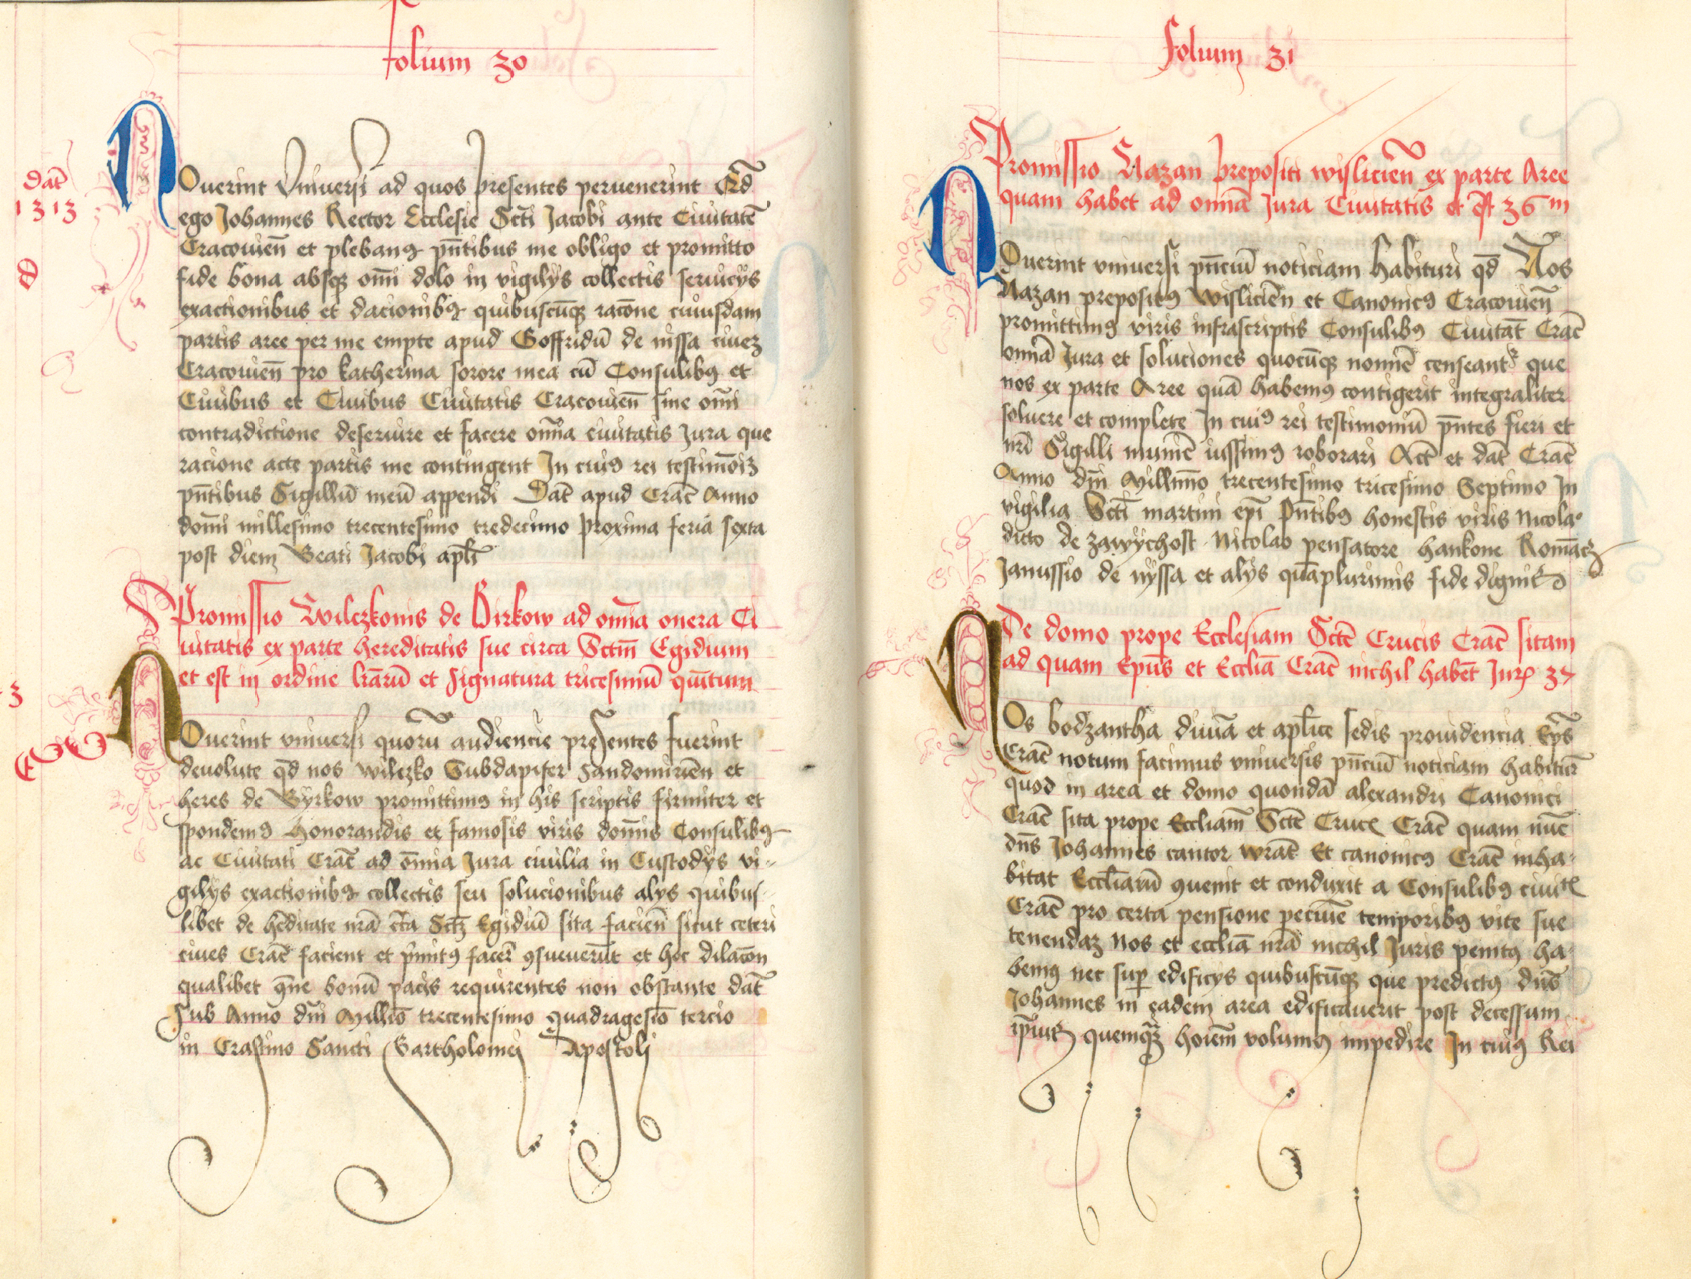 folium 30
Dat̄
1313
Nouerint Vniuersi ad quos presentes peruenerint Qd̄
ego Johannes Rector Ecclesie Sct̄i Jacobi ante Ciuitatē
Cracouien̄ et plebanꝰ pn̄tibus me obligo et promitto
fide bona absqꝫ om̄i dolo in vigilijs collectis seruicijs
exactionibus et dacionibꝰ quibuscūqꝫ racōne cuiusdam
partis aree per me empte apud Goffridū de nissa ciueꝫ
Cracouien̄ pro katherina sorore mea cū Consulibꝰ et
Ciuibus et Ciuibus Ciuitatis Cracouien̄ sine om̄i
contradictione deseruire et facere om̄ia ciuitatis Jura que
racione acte partis me contingent In cuiꝰ rei testimōiꝫ
pn̄tibus Sigillū meū appendi Dat̄ apud Crac̄ Anno
domī millesimo trecentesimo tredecimo proxima feria sexta
post diem Beati Jacobi apl̄i
Promissio Wilczkonis de Birkow ad om̄ia onera Ci
uitatis ex parte hereditatis sue circa Sctm̄ Egidium
et est in ordine lr̄arū et signatura tricesimū quītum
3
Nouerint vniuersi quorū audiencie presentes fuerint
deuolute qd̄ nos wilczko Subdapifer Sandomiriēn et
heres de Byrkow promittimꝰ in his scriptis firmiter et
spondemꝰ Honorandis et famosis viris domīs Consulibꝰ
ac Ciuitati Crac̄ ad ōmia Jura ciuilia in Custodijs vi-
gilijs exactionibꝰ collectis seu solucionibus alijs quibus-
libet de hēditate nrā cīta Sctꝫ Egidiū sita facien̄ sicut ceteri
ciues Crac̄ facient et pīnitꝰ facer̄ ꝯsueuerūt et hoc dilacōn
qualibet qn̄e bonū pacis requirentes non obstante dat̄
Sub Anno dn̄i Millīo trecentesimo quadragesīo tercio
in Crastino Sancti Bartholomei Apostoli
folium 31
Promissio Nazan prepositi wislicien̄ ex parte Aree
quam habet ad omnīa Jura Ciuitatis et est̄ 36 m
Nouerint vniuersi pn̄ciū noticiam habituri qd̄ Nos
Nazan prepositꝰ Wislicien̄ et Canonicꝰ Cracouien̄
promittimꝰ viris infrascriptis Consulibꝰ Ciuitat̄ Crac̄
omīa Jura et soluciones quocūqꝫ nomīe censeant̄ que
nos ex parte Aree quā habemꝰ contigerit integraliter
soluere et complete In cuiꝰ rei testimoniū pn̄tes fieri et
nrī Sigilli munīē iussimꝰ roborari Act̄ et dat̄ Crac̄
Anno dn̄i Millīmo trecentesimo tricesimo Septimo In
vigilia Sct̄i martini ep̄i Pn̄tibꝰ honestis viris Nicola
dicto de zawychost Nicolao pensatore hankone Romācꝫ
Janussio de nyssa et alijs quāplurimis fide dignis
De domo prope Ecclesiam Sctē Crucis Crac̄ sitam
ad quam Ep̄us et Eccl̄iā Crac̄ nichil habēt Jurꝭ 37
Nos bodzantha diuīa et apl̄ice sedis prouidencia Ep̄s
Crac̄ notum facimus vniuersis pn̄ciū noticiam habitur̄
quod in area et domo quondā alexandri Canonici
Crac̄ sita prope Eccl̄iam̄ Sctē Crucꝭ Crac̄ quam nūc
dn̄s Johannes cantor wrat̄ Et canonicꝰ Crac̄ inha-
bitat Eccl̄iarū ꝯuenit et conduxit a Consulibꝰ ciuitꝭ
Crac̄ pro certa pensione pecuīe temporibꝰ vite sue
tenendaꝫ nos et eccl̄iā nrā nichil Juris penitꝰ ha-
bemꝰ nec sup̄ edificijs quibuscūqꝫ que predictꝰ dn̄s
Johannes in eadem area edificauerit post decessum
ip̄iuꝰ quemqꝫ hoīem volumꝰ impedire In cuiꝰ Rei